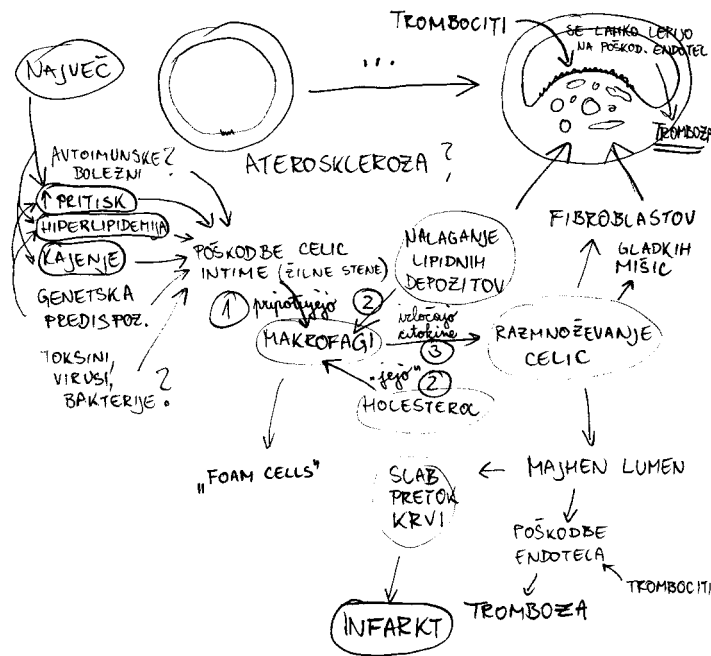 TROMBOCITI
SE LAHKO LEPIJO
NA POŠKOD. ENDOTEL
TROMBOZA
NAJVEČ
...
ATEROSKLEROZA ?
AVTOIMUNSKE ?
BOLEZNI
↑ PRITISK
HIPERLIPIDEMIJA
KAJENJE
GENETSKA
PREDISPOZ.
TOKSINI,
VIRUSI,
BAKTERIJE ?
POŠKODBE CELIC
INTIME (ŽILNE STENE)
1 pripotujejo
2
MAKROFAGI
NALAGANJE
LIPIDNIH
DEPOZITOV
izločajo
citokine
3
"jejo" 2'
HOLESTEROL
FIBROBLASTOV
GLADKIH
MIŠIC
RAZMNOŽEVANJE
CELIC
„FOAM CELLS"
SLAB
PRETOK
KRVI
MAJHEN LUMEN
POŠKODBE
ENDOTELA
TROMBOCITI
TROMBOZA
INFARKT